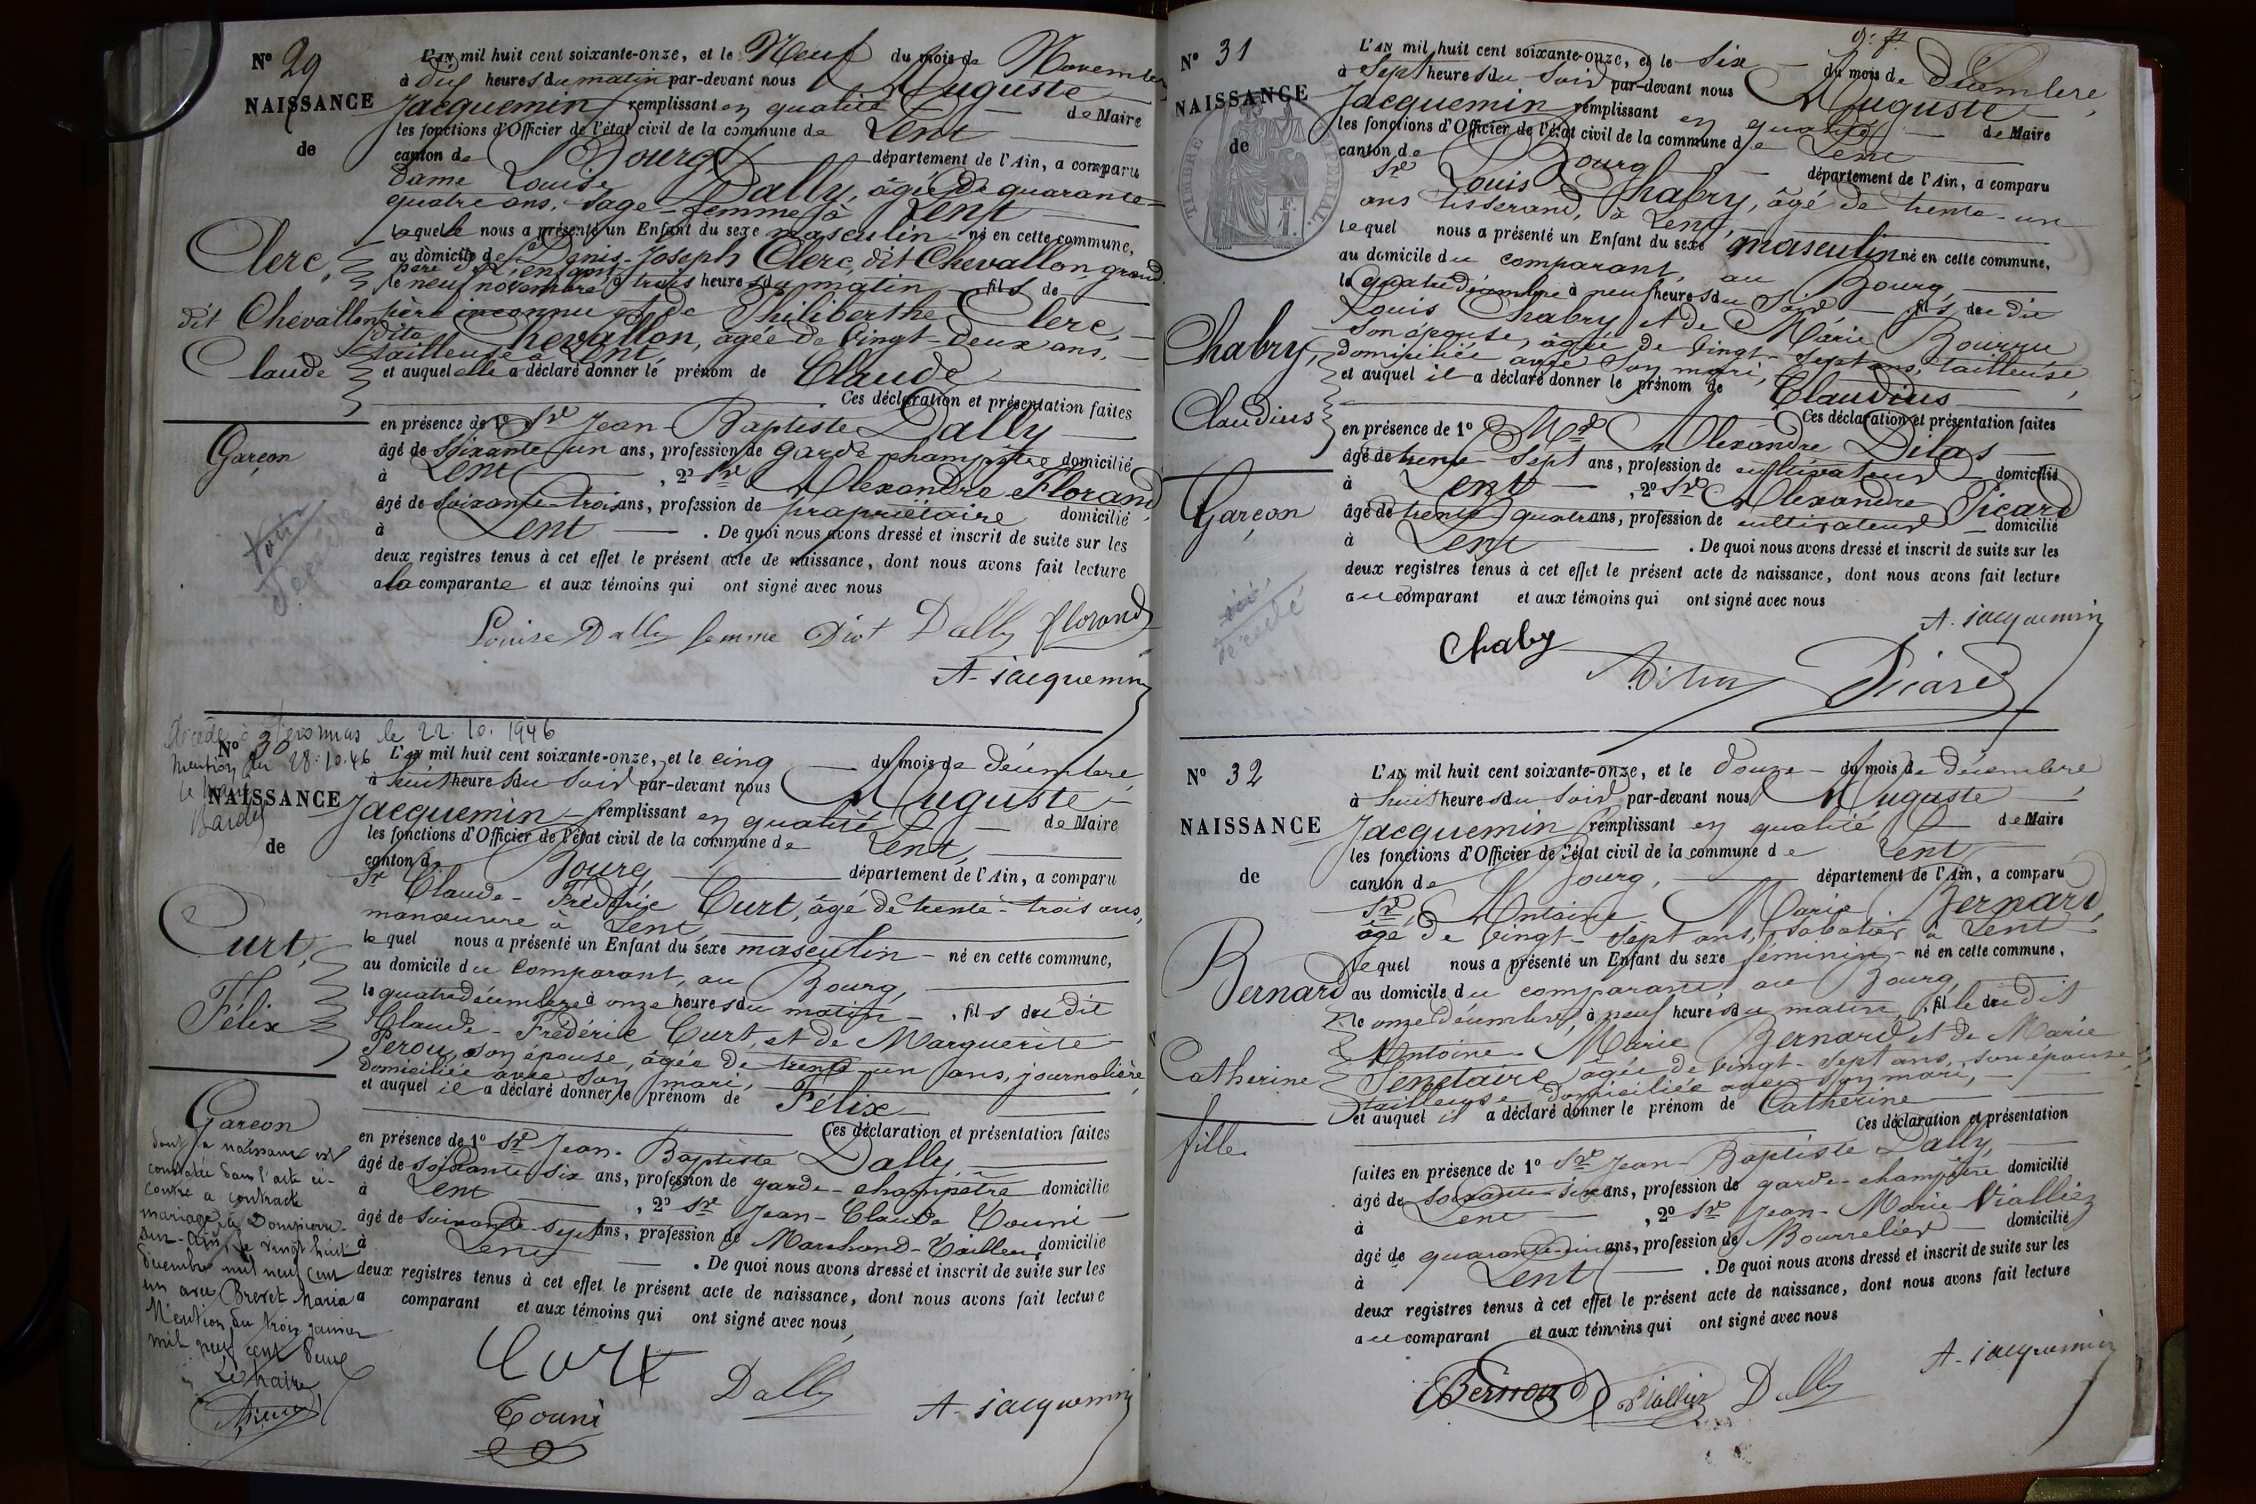 N° 29
NAISSANCE
de
Clerc,
dit Chevallon
Claude
Garçon
L'AN mil huit cent soixante-onze, et le Neuf du mois de Novembre
à dix heures du matin par-devant nous Auguste
Jacquemin remplissant en qualité de Maire
les fonctions d'Officier de l'état civil de la commune de Lent
canton de Bourg département de l'Ain, a comparu
Dame Louise Dally, âgée de quarante-
quatre ans, sage-femme à Lent
laquelle nous a présenté un Enfant du sexe masculin né en cette commune,
au domicile de Denis-Joseph Clerc, dit Chevallon, grand
père de l'enfant
le neuf novembre à trois heures du matin fils de
père inconnu et de Philiberthe Clerc,
dite Chevallon, âgée de vingt-deux ans,
tailleuse à Lent,
et auquel elle a déclaré donner le prénom de Claude
Ces déclaration et présentation faites
en présence de 1° Sr Jean-Baptiste Dally
âgé de soixante un ans, profession de garde champêtre domicilié
à Lent, 2° Sr Alexandre Florand
âgé de soixante trois ans, profession de propriétaire domicilié
à Lent. De quoi nous avons dressé et inscrit de suite sur les
deux registres tenus à cet effet le présent acte de naissance, dont nous avons fait lecture
a la comparante et aux témoins qui ont signé avec nous
Louise Dally femme Diot Dally Florand
A. jacquemin
Décédé à le 22.10.1946
Mention du 28.10.46
N° 30
NAISSANCE
de
Curt,
Félix
Garçon
dont la naissance est
constatée dans l'acte ci-
contre a contracté
mariage à Dompierre-
sur-Ain le vingt huit
décembre mil neuf cent
un avec Brevet Maria
Mention du trois janvier
mil neuf cent deux
Le Maire
L'AN mil huit cent soixante-onze, et le cinq du mois de décembre
à huit heures du soir par-devant nous Auguste
Jacquemin remplissant en qualité de Maire
les fonctions d'Officier de l'état civil de la commune de Lent,
canton de Bourg département de l'Ain, a comparu
Sr Claude-Frédéric Curt, âgé de trente-trois ans,
manœuvre à Lent,
lequel nous a présenté un Enfant du sexe masculin né en cette commune,
au domicile du comparant, au Bourg,
le quatre décembre à onze heures du matin, fils du dit
Claude-Frédéric Curt, et de Marguerite
Perou, son épouse, âgée de trente-un ans, journalière,
domiciliée avec son mari,
et auquel il a déclaré donner le prénom de Félix
Ces déclaration et présentation faites
en présence de 1° Sr Jean-Baptiste Dally,
âgé de soixante-six ans, profession de garde-champêtre domicilié
à Lent, 2° Sr Jean-Claude Touni
âgé de soixante-sept ans, profession de Marchand-Tailleur domicilié
à Lent. De quoi nous avons dressé et inscrit de suite sur les
deux registres tenus à cet effet le présent acte de naissance, dont nous avons fait lecture
a comparant et aux témoins qui ont signé avec nous
Curt
Touni
Dally
A. jacquemin
N° 31
NAISSANCE
de
Chabry,
Claudius
Garçon
L'AN mil huit cent soixante-onze, et le six du mois de décembre,
à sept heures du soir par-devant nous Auguste
Jacquemin remplissant en qualité de Maire
les fonctions d'Officier de l'état civil de la commune de Lent
canton de Bourg département de l'Ain, a comparu
Sr Louis Chabry, âgé de trente-un
ans tisserand, à Lent,
lequel nous a présenté un Enfant du sexe masculin né en cette commune,
au domicile du comparant, au Bourg,
le quatre décembre à neuf heures du soir fils du dit
Louis Chabry et de Marie Bourru
son épouse, âgée de vingt-sept ans, tailleuse,
domiciliée avec son mari,
et auquel il a déclaré donner le prénom de Claudius
Ces déclaration et présentation faites
en présence de 1° Alexandre Dilas
âgé de trente-sept ans, profession de cultivateur domicilié
à Lent, 2° Sr Alexandre Picard
âgé de trente quatre ans, profession de cultivateur domicilié
à Lent. De quoi nous avons dressé et inscrit de suite sur les
deux registres tenus à cet effet le présent acte de naissance, dont nous avons fait lecture
au comparant et aux témoins qui ont signé avec nous
A. jacquemin
Chaby
Picard
N° 32
NAISSANCE
de
Bernard
Catherine
fille
L'AN mil huit cent soixante-onze, et le douze du mois de décembre
à huit heures du soir par-devant nous Auguste
Jacquemin remplissant en qualité de Maire
les fonctions d'Officier de l'état civil de la commune de Lent
canton de Bourg, département de l'Ain, a comparu
Sr Antoine-Marie Bernard,
âgé de vingt-sept ans, sabotier à Lent
lequel nous a présenté un Enfant du sexe féminin né en cette commune,
au domicile du comparant au Bourg,
le onze décembre, à neuf heures du matin, fille du dit
Antoine-Marie Bernard et de Marie
Senetaire, âgée de vingt-sept ans, son épouse,
tailleuse domiciliée avec son mari,
et auquel il a déclaré donner le prénom de Catherine
Ces déclaration et présentation
faites en présence de 1° Sr Jean-Baptiste Dally,
âgé de soixante-six ans, profession de garde-champêtre domicilié
à Lent, 2° Sr Jean-Marie Viallier
âgé de quarante-cinq ans, profession de Bourrelier domicilié
à Lent. De quoi nous avons dressé et inscrit de suite sur les
deux registres tenus à cet effet le présent acte de naissance, dont nous avons fait lecture
au comparant et aux témoins qui ont signé avec nous
A. jacquemin
Bernard Viallier Dally